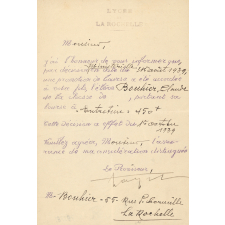 LYCÉE
LA ROCHELLE
Monsieur,
J'ai l'honneur de vous informer que,
par décision
Ministérielle
du 18 août 1939,
une de bourse a été accordée
à votre fils, l'élève Bouhier, Claude
de la classe de
bourse d'entretien : 450 f
Cette décision a effet du 1er octobre
1939
Veuillez agréer, Monsieur, l'assu-
rance de ma considération distinguée
Le Proviseur,
M. Bouhier - 55 - Rue
La Rochelle